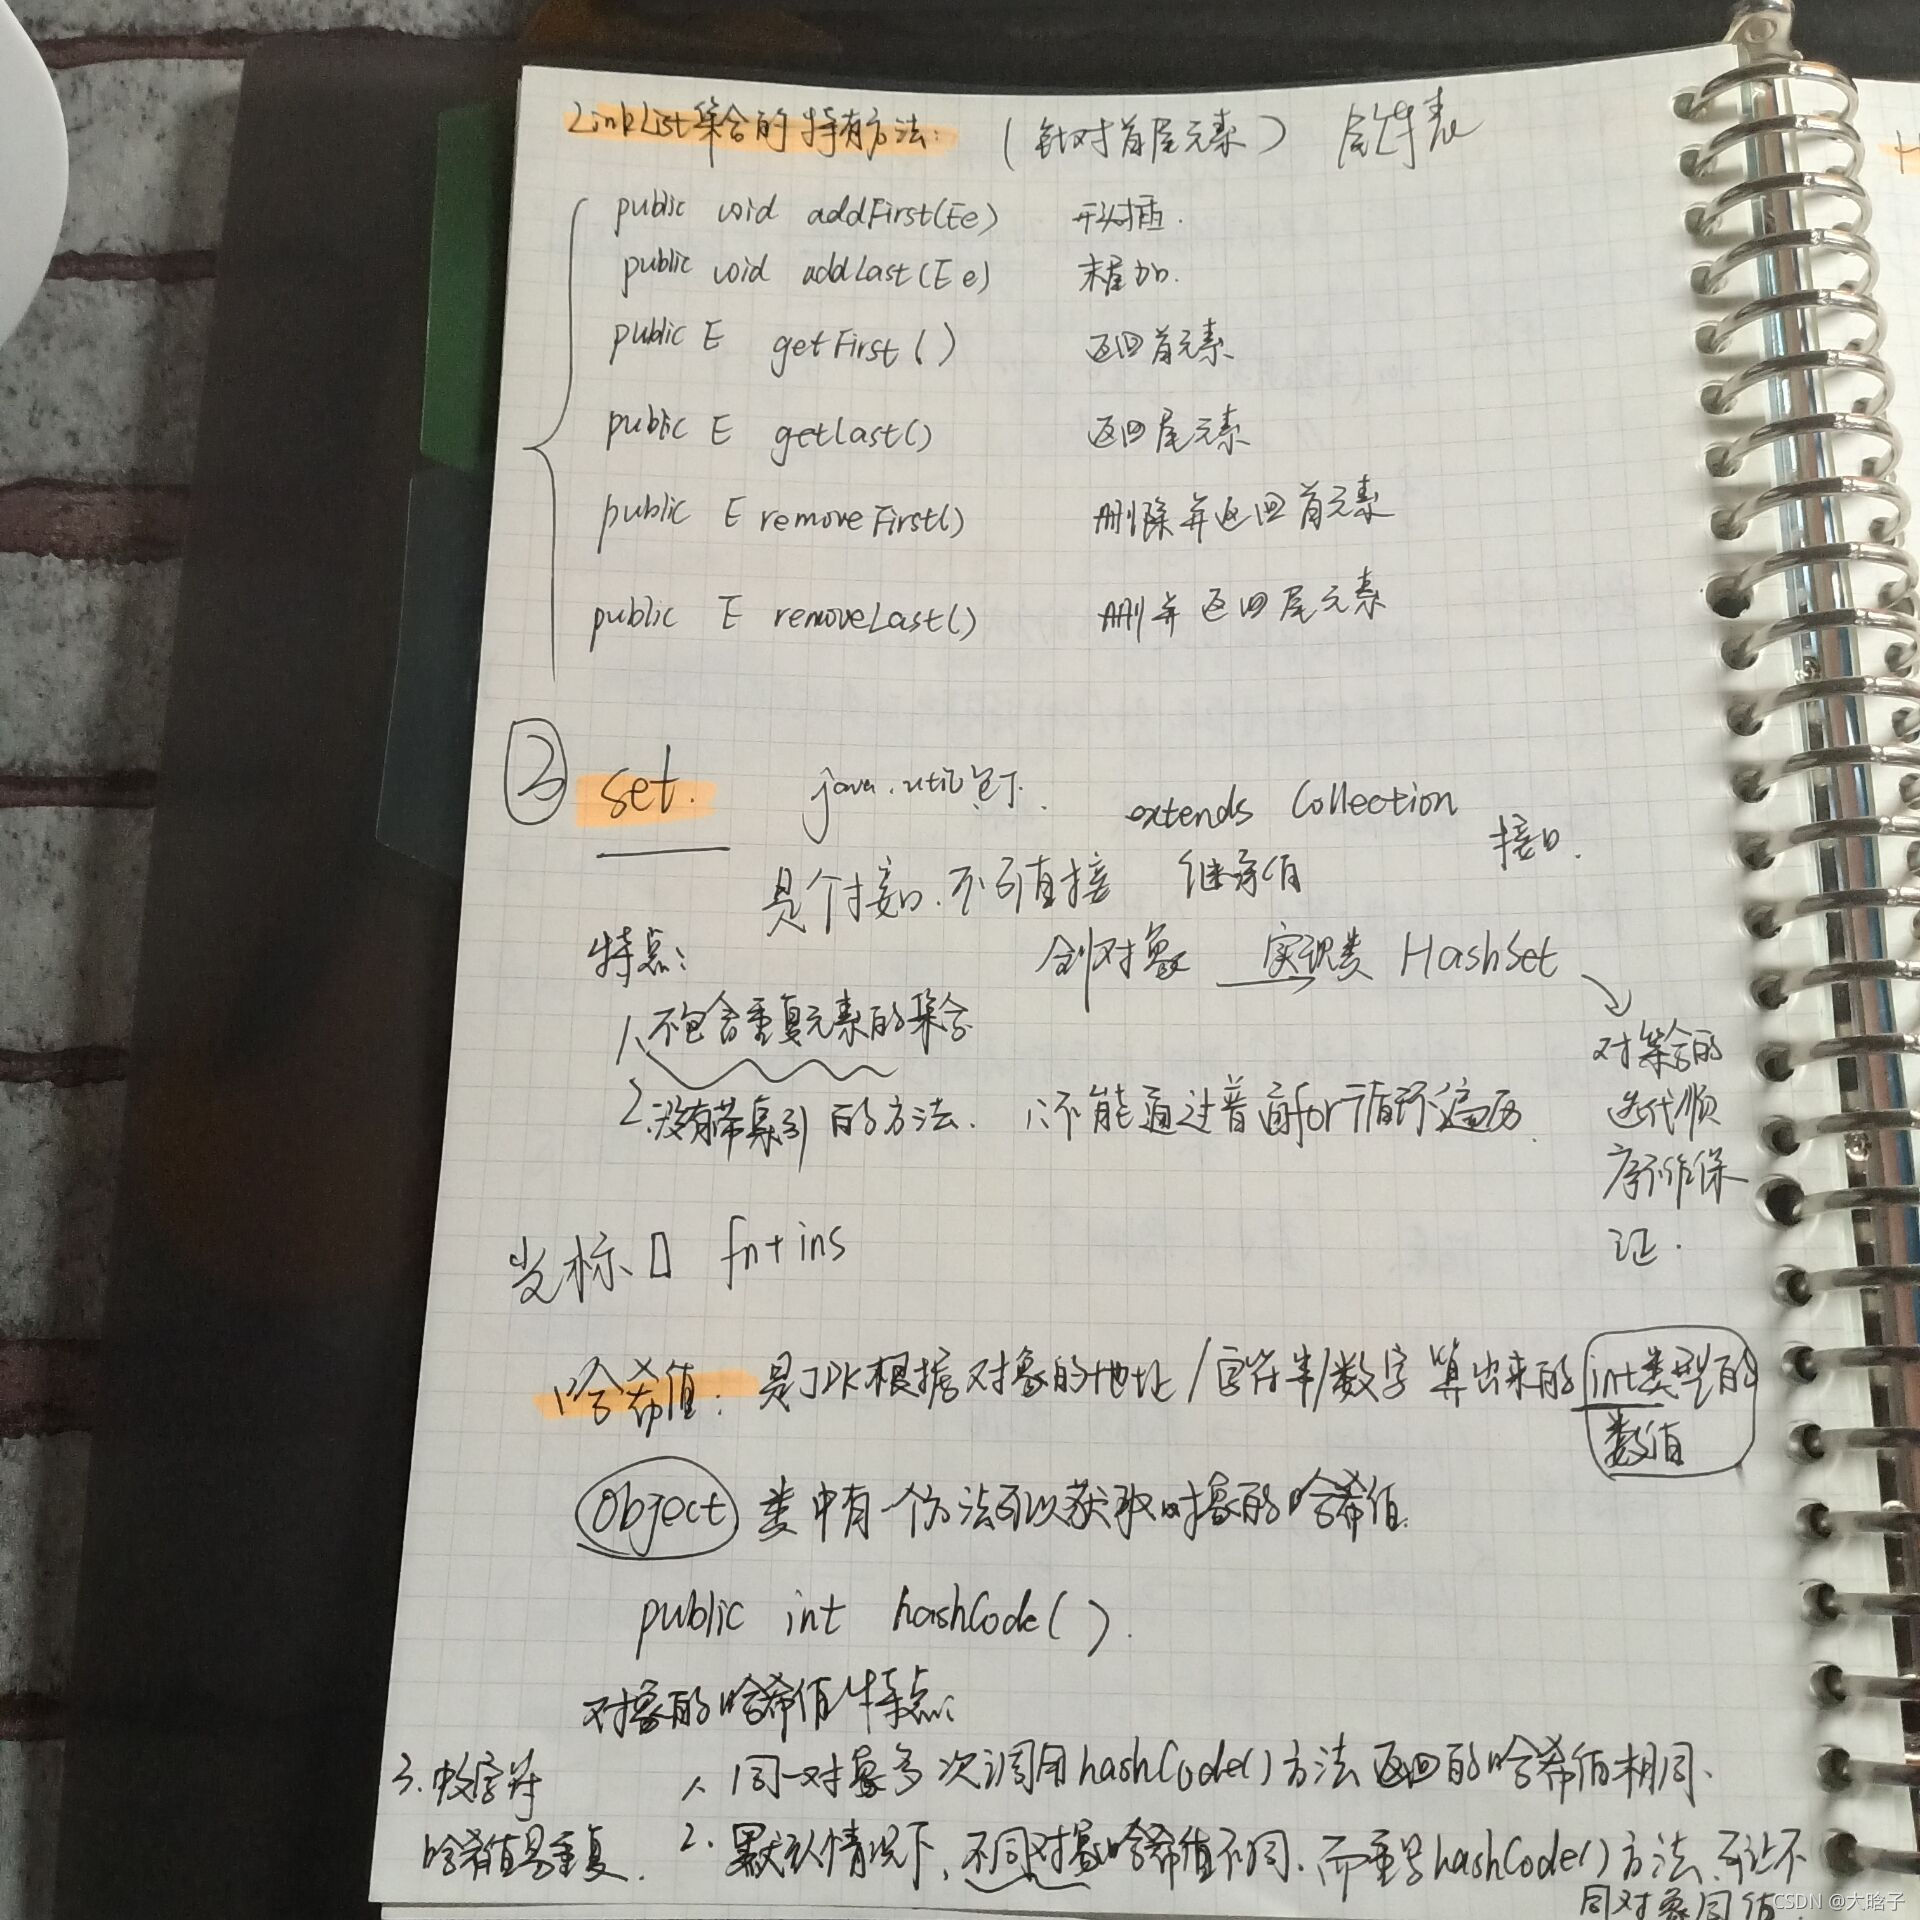 LinkList集合的特有方法：（针对首尾元素）
public void addFirst(E e) 开头插.
public void addLast(E e) 末尾加.
public E getFirst() 返回首元素
public E getLast() 返回尾元素
public E removeFirst() 删除并返回首元素
public E removeLast() 删并返回尾元素
② set. java.util包下. extends Collection 接口.
是个接口.不可直接 继承自
创对象 实现类 HashSet
特点：
1、不包含重复元素的集合
2.没有带索引的方法. ∴不能通过普通for循环遍历.
对集合的
迭代顺
序不作保
证.
光标 fn+ins
哈希值：是JDK根据对象的地址/字符串/数字算出来的int类型的
数值
Object 类中有一个方法可以获取对象的哈希值.
public int hashCode().
对象的哈希值特点：
1、同一对象多次调用hashCode()方法返回的哈希值相同、
2. 默认情况下，不同对象哈希值不同.而重写hashCode()方法、可让不
同对象同值.
3.
哈希值易重复.
H
CSDN @大晗子